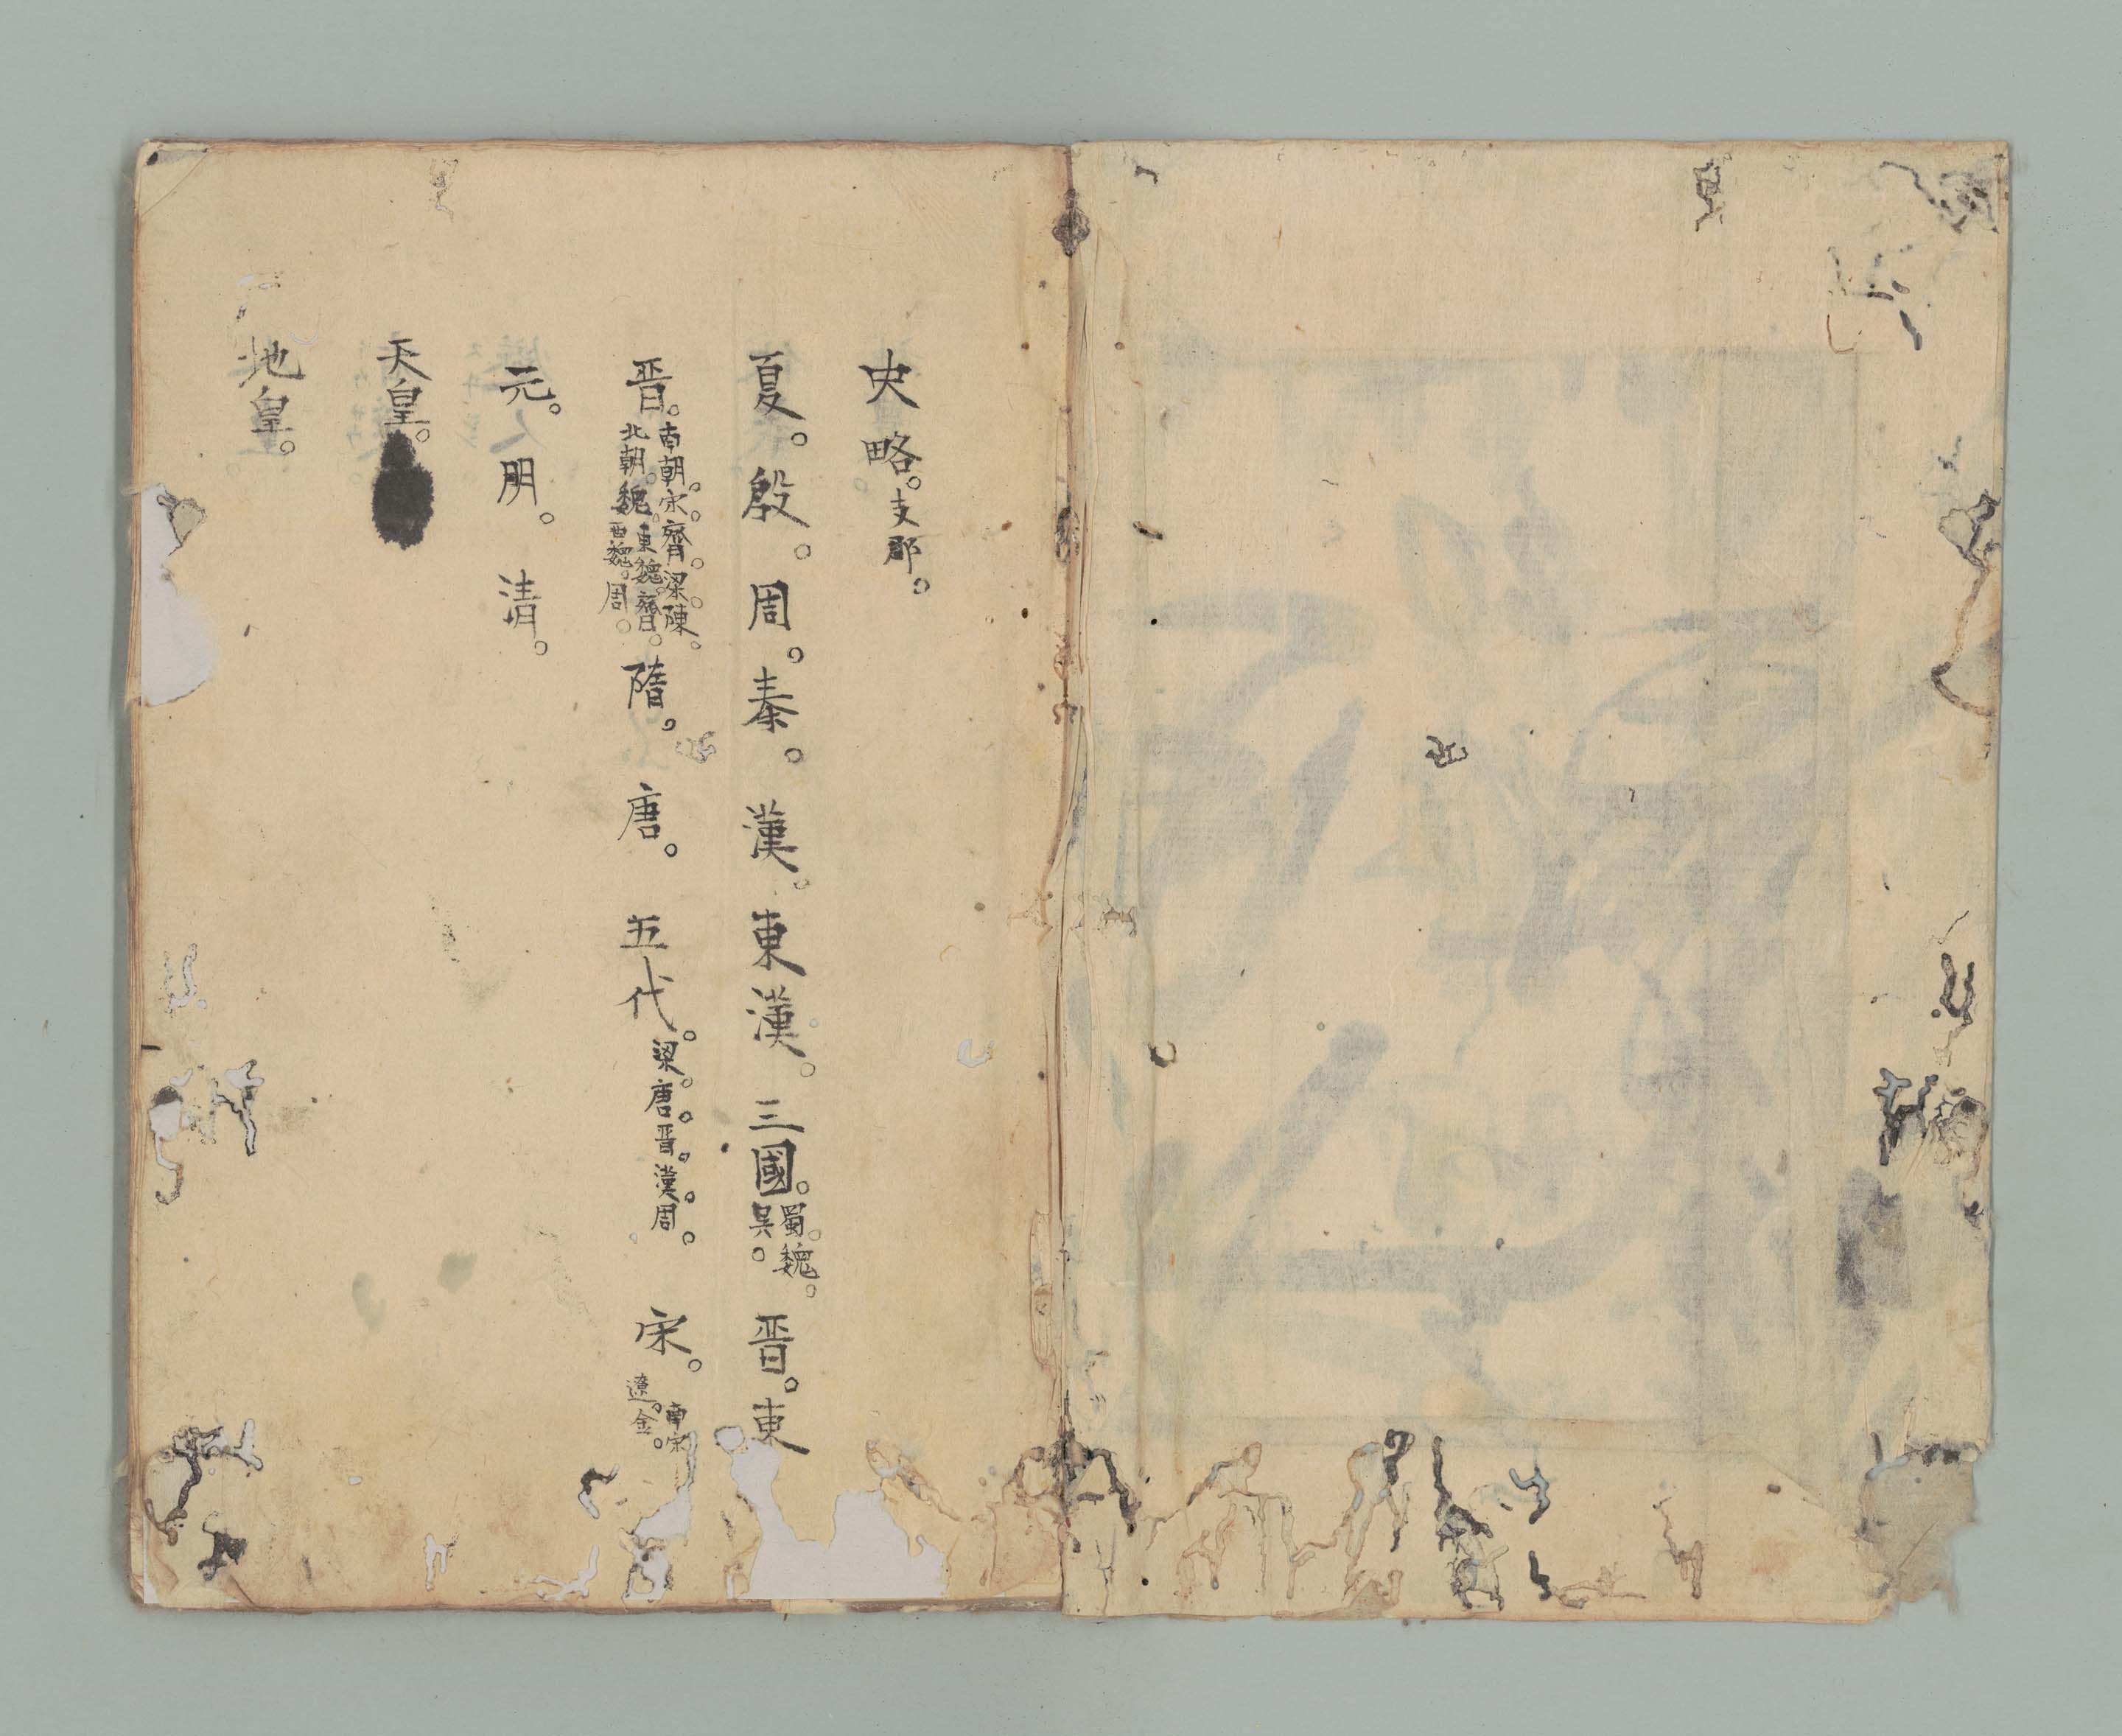 史略。支那。
夏。殷。周。秦。漢。東漢。三國。蜀。魏。吳。晋。東
晋。南朝。宋。齊。梁。陳。北朝。魏。東魏。齊。西魏。周。隋。唐。五代。梁。唐。晋。漢。周。宋。南宋。遼。金。
元。明。清。
天皇。
地皇。